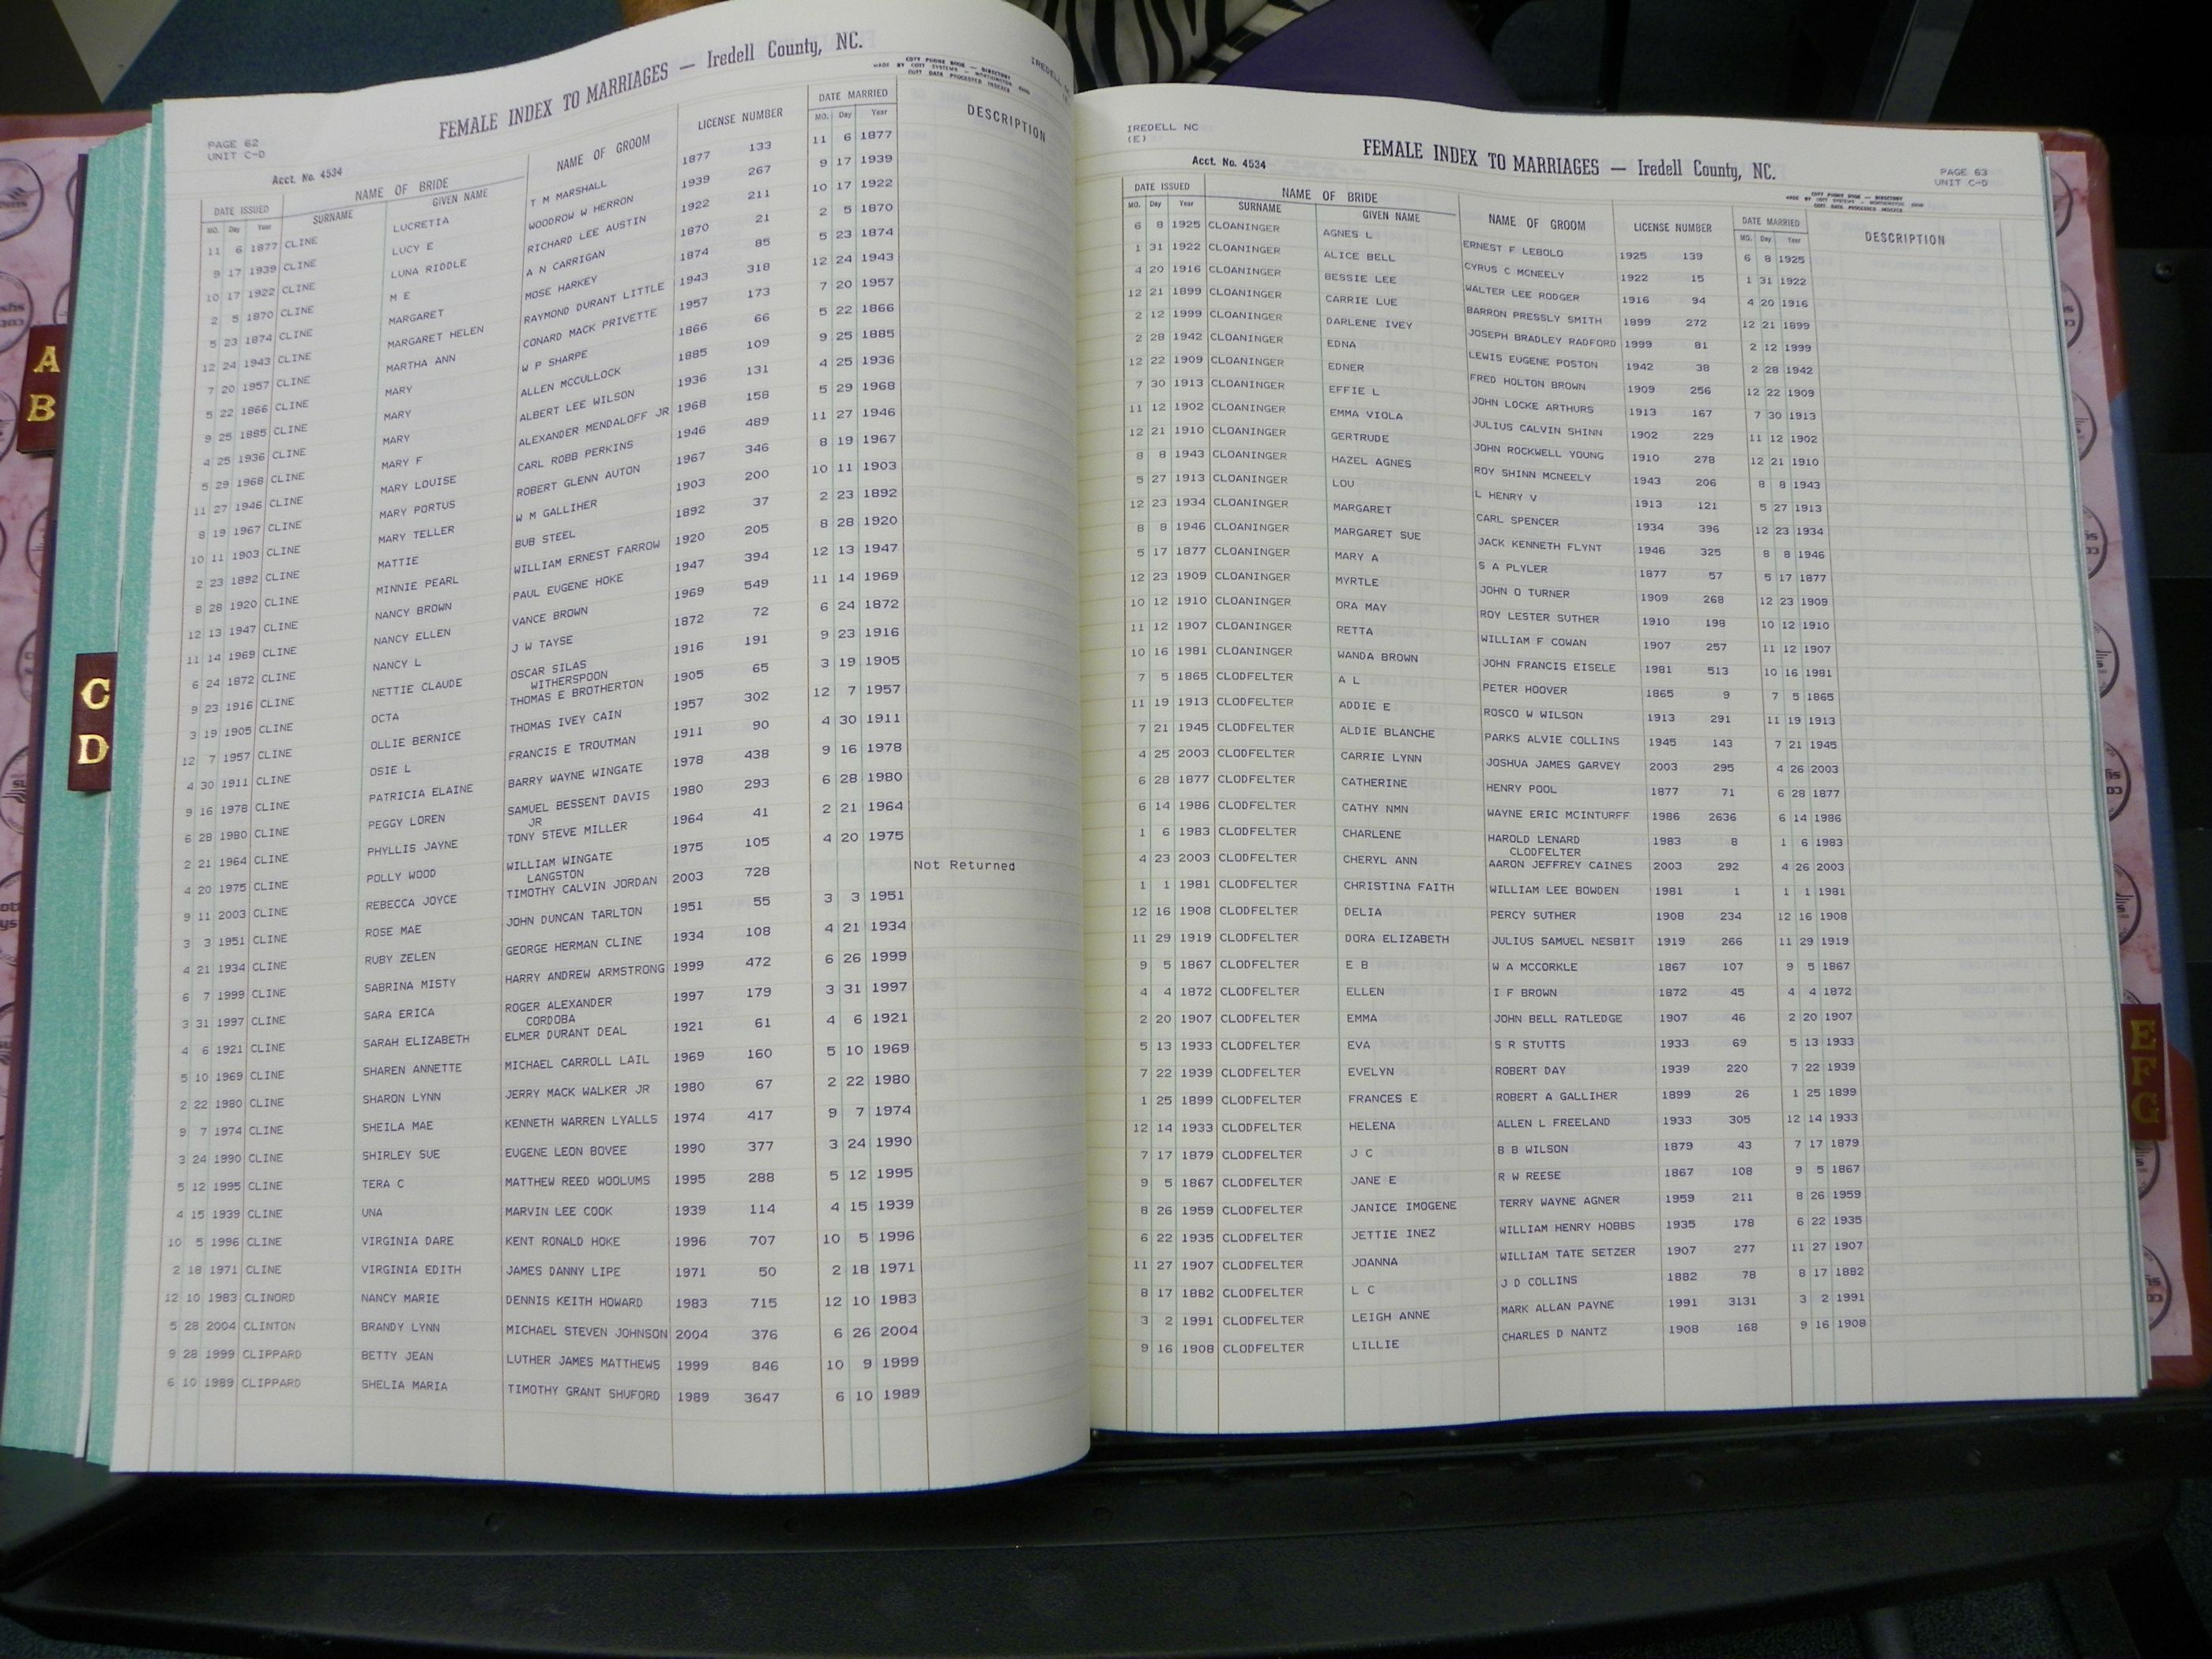 FEMALE INDEX TO MARRIAGES — Iredell County, NC.
COTT PHONE BOOK — DIRECTORY
MADE BY COTT SYSTEMS — WORTHINGTON
COTT DATA PROCESSED INDEXES
PAGE 62
UNIT C-D
Acct. No. 4534
DATE ISSUED NAME OF BRIDE NAME OF GROOM LICENSE NUMBER DATE MARRIED DESCRIPTION
MO. Day Year SURNAME GIVEN NAME MO. Day Year
11 6 1877 CLINE LUCRETIA T M MARSHALL 1877 133 11 6 1877
9 17 1939 CLINE LUCY E WOODROW W HERRON 1939 267 9 17 1939
10 17 1922 CLINE LUNA RIDDLE RICHARD LEE AUSTIN 1922 211 10 17 1922
2 5 1870 CLINE M E A N CARRIGAN 1870 21 2 5 1870
5 23 1874 CLINE MARGARET MOSE HARKEY 1874 85 5 23 1874
12 24 1943 CLINE MARGARET HELEN RAYMOND DURANT LITTLE 1943 318 12 24 1943
7 20 1957 CLINE MARTHA ANN CONARD MACK PRIVETTE 1957 173 7 20 1957
5 22 1866 CLINE MARY W P SHARPE 1866 66 5 22 1866
9 25 1885 CLINE MARY ALLEN MCCULLOCK 1885 109 9 25 1885
4 25 1936 CLINE MARY ALBERT LEE WILSON 1936 131 4 25 1936
5 29 1968 CLINE MARY F ALEXANDER MENDALOFF JR 1968 158 5 29 1968
11 27 1946 CLINE MARY LOUISE CARL ROBB PERKINS 1946 489 11 27 1946
8 19 1967 CLINE MARY PORTUS ROBERT GLENN AUTON 1967 346 8 19 1967
10 11 1903 CLINE MARY TELLER W M GALLIHER 1903 200 10 11 1903
2 23 1892 CLINE MATTIE BUB STEEL 1892 37 2 23 1892
8 28 1920 CLINE MINNIE PEARL WILLIAM ERNEST FARROW 1920 205 8 28 1920
12 13 1947 CLINE NANCY BROWN PAUL EUGENE HOKE 1947 394 12 13 1947
11 14 1969 CLINE NANCY ELLEN VANCE BROWN 1969 549 11 14 1969
6 24 1872 CLINE NANCY L J W TAYSE 1872 72 6 24 1872
9 23 1916 CLINE NETTIE CLAUDE OSCAR SILAS 1916 191 9 23 1916
WITHERSPOON
3 19 1905 CLINE OCTA THOMAS E BROTHERTON 1905 65 3 19 1905
12 7 1957 CLINE OLLIE BERNICE THOMAS IVEY CAIN 1957 302 12 7 1957
4 30 1911 CLINE OSIE L FRANCIS E TROUTMAN 1911 90 4 30 1911
9 16 1978 CLINE PATRICIA ELAINE BARRY WAYNE WINGATE 1978 438 9 16 1978
6 28 1980 CLINE PEGGY LOREN SAMUEL BESSENT DAVIS 1980 293 6 28 1980
JR
2 21 1964 CLINE PHYLLIS JAYNE TONY STEVE MILLER 1964 41 2 21 1964
4 20 1975 CLINE POLLY WOOD WILLIAM WINGATE 1975 105 4 20 1975
LANGSTON
9 11 2003 CLINE REBECCA JOYCE TIMOTHY CALVIN JORDAN 2003 728 Not Returned
3 3 1951 CLINE ROSE MAE JOHN DUNCAN TARLTON 1951 55 3 3 1951
4 21 1934 CLINE RUBY ZELEN GEORGE HERMAN CLINE 1934 108 4 21 1934
6 7 1999 CLINE SABRINA MISTY HARRY ANDREW ARMSTRONG 1999 472 6 26 1999
3 31 1997 CLINE SARA ERICA ROGER ALEXANDER 1997 179 3 31 1997
CORDOBA
4 6 1921 CLINE SARAH ELIZABETH ELMER DURANT DEAL 1921 61 4 6 1921
5 10 1969 CLINE SHAREN ANNETTE MICHAEL CARROLL LAIL 1969 160 5 10 1969
2 22 1980 CLINE SHARON LYNN JERRY MACK WALKER JR 1980 67 2 22 1980
9 7 1974 CLINE SHEILA MAE KENNETH WARREN LYALLS 1974 417 9 7 1974
3 24 1990 CLINE SHIRLEY SUE EUGENE LEON BOVEE 1990 377 3 24 1990
5 12 1995 CLINE TERA C MATTHEW REED WOOLUMS 1995 288 5 12 1995
4 15 1939 CLINE UNA MARVIN LEE COOK 1939 114 4 15 1939
10 5 1996 CLINE VIRGINIA DARE KENT RONALD HOKE 1996 707 10 5 1996
2 18 1971 CLINE VIRGINIA EDITH JAMES DANNY LIPE 1971 50 2 18 1971
12 10 1983 CLINORD NANCY MARIE DENNIS KEITH HOWARD 1983 715 12 10 1983
5 28 2004 CLINTON BRANDY LYNN MICHAEL STEVEN JOHNSON 2004 376 6 26 2004
9 28 1999 CLIPPARD BETTY JEAN LUTHER JAMES MATTHEWS 1999 846 10 9 1999
6 10 1989 CLIPPARD SHELIA MARIA TIMOTHY GRANT SHUFORD 1989 3647 6 10 1989
IREDELL NC
(E)
Acct. No. 4534
FEMALE INDEX TO MARRIAGES — Iredell County, NC.
PAGE 63
UNIT C-D
COTT PHONE BOOK — DIRECTORY
MADE BY COTT SYSTEMS — WORTHINGTON
COTT DATA PROCESSED INDEXES
DATE ISSUED NAME OF BRIDE NAME OF GROOM LICENSE NUMBER DATE MARRIED DESCRIPTION
MO. Day Year SURNAME GIVEN NAME MO. Day Year
6 8 1925 CLOANINGER AGNES L ERNEST F LEBOLO 1925 139 6 8 1925
1 31 1922 CLOANINGER ALICE BELL CYRUS C MCNEELY 1922 15 1 31 1922
4 20 1916 CLOANINGER BESSIE LEE WALTER LEE RODGER 1916 94 4 20 1916
12 21 1899 CLOANINGER CARRIE LUE BARRON PRESSLY SMITH 1899 272 12 21 1899
2 12 1999 CLOANINGER DARLENE IVEY JOSEPH BRADLEY RADFORD 1999 81 2 12 1999
2 28 1942 CLOANINGER EDNA LEWIS EUGENE POSTON 1942 38 2 28 1942
12 22 1909 CLOANINGER EDNER FRED HOLTON BROWN 1909 256 12 22 1909
7 30 1913 CLOANINGER EFFIE L JOHN LOCKE ARTHURS 1913 167 7 30 1913
11 12 1902 CLOANINGER EMMA VIOLA JULIUS CALVIN SHINN 1902 229 11 12 1902
12 21 1910 CLOANINGER GERTRUDE JOHN ROCKWELL YOUNG 1910 278 12 21 1910
8 8 1943 CLOANINGER HAZEL AGNES ROY SHINN MCNEELY 1943 206 8 8 1943
5 27 1913 CLOANINGER LOU L HENRY V 1913 121 5 27 1913
12 23 1934 CLOANINGER MARGARET CARL SPENCER 1934 396 12 23 1934
8 8 1946 CLOANINGER MARGARET SUE JACK KENNETH FLYNT 1946 325 8 8 1946
5 17 1877 CLOANINGER MARY A S A PLYLER 1877 57 5 17 1877
12 23 1909 CLOANINGER MYRTLE JOHN O TURNER 1909 268 12 23 1909
10 12 1910 CLOANINGER ORA MAY ROY LESTER SUTHER 1910 198 10 12 1910
11 12 1907 CLOANINGER RETTA WILLIAM F COWAN 1907 257 11 12 1907
10 16 1981 CLOANINGER WANDA BROWN JOHN FRANCIS EISELE 1981 513 10 16 1981
7 5 1865 CLODFELTER A L PETER HOOVER 1865 9 7 5 1865
11 19 1913 CLODFELTER ADDIE E ROSCO W WILSON 1913 291 11 19 1913
7 21 1945 CLODFELTER ALDIE BLANCHE PARKS ALVIE COLLINS 1945 143 7 21 1945
4 25 2003 CLODFELTER CARRIE LYNN JOSHUA JAMES GARVEY 2003 295 4 26 2003
6 28 1877 CLODFELTER CATHERINE HENRY POOL 1877 71 6 28 1877
6 14 1986 CLODFELTER CATHY NMN WAYNE ERIC MCINTURFF 1986 2636 6 14 1986
1 6 1983 CLODFELTER CHARLENE HAROLD LENARD 1983 8 1 6 1983
CLODFELTER
4 23 2003 CLODFELTER CHERYL ANN AARON JEFFREY CAINES 2003 292 4 26 2003
1 1 1981 CLODFELTER CHRISTINA FAITH WILLIAM LEE BOWDEN 1981 1 1 1 1981
12 16 1908 CLODFELTER DELIA PERCY SUTHER 1908 234 12 16 1908
11 29 1919 CLODFELTER DORA ELIZABETH JULIUS SAMUEL NESBIT 1919 266 11 29 1919
9 5 1867 CLODFELTER E B W A MCCORKLE 1867 107 9 5 1867
4 4 1872 CLODFELTER ELLEN I F BROWN 1872 45 4 4 1872
2 20 1907 CLODFELTER EMMA JOHN BELL RATLEDGE 1907 46 2 20 1907
5 13 1933 CLODFELTER EVA S R STUTTS 1933 69 5 13 1933
7 22 1939 CLODFELTER EVELYN ROBERT DAY 1939 220 7 22 1939
1 25 1899 CLODFELTER FRANCES E ROBERT A GALLIHER 1899 26 1 25 1899
12 14 1933 CLODFELTER HELENA ALLEN L FREELAND 1933 305 12 14 1933
7 17 1879 CLODFELTER J C B B WILSON 1879 43 7 17 1879
9 5 1867 CLODFELTER JANE E R W REESE 1867 108 9 5 1867
8 26 1959 CLODFELTER JANICE IMOGENE TERRY WAYNE AGNER 1959 211 8 26 1959
6 22 1935 CLODFELTER JETTIE INEZ WILLIAM HENRY HOBBS 1935 178 6 22 1935
11 27 1907 CLODFELTER JOANNA WILLIAM TATE SETZER 1907 277 11 27 1907
8 17 1882 CLODFELTER L C J D COLLINS 1882 78 8 17 1882
3 2 1991 CLODFELTER LEIGH ANNE MARK ALLAN PAYNE 1991 3131 3 2 1991
9 16 1908 CLODFELTER LILLIE CHARLES D NANTZ 1908 168 9 16 1908
A
B
C
D
E
F
G